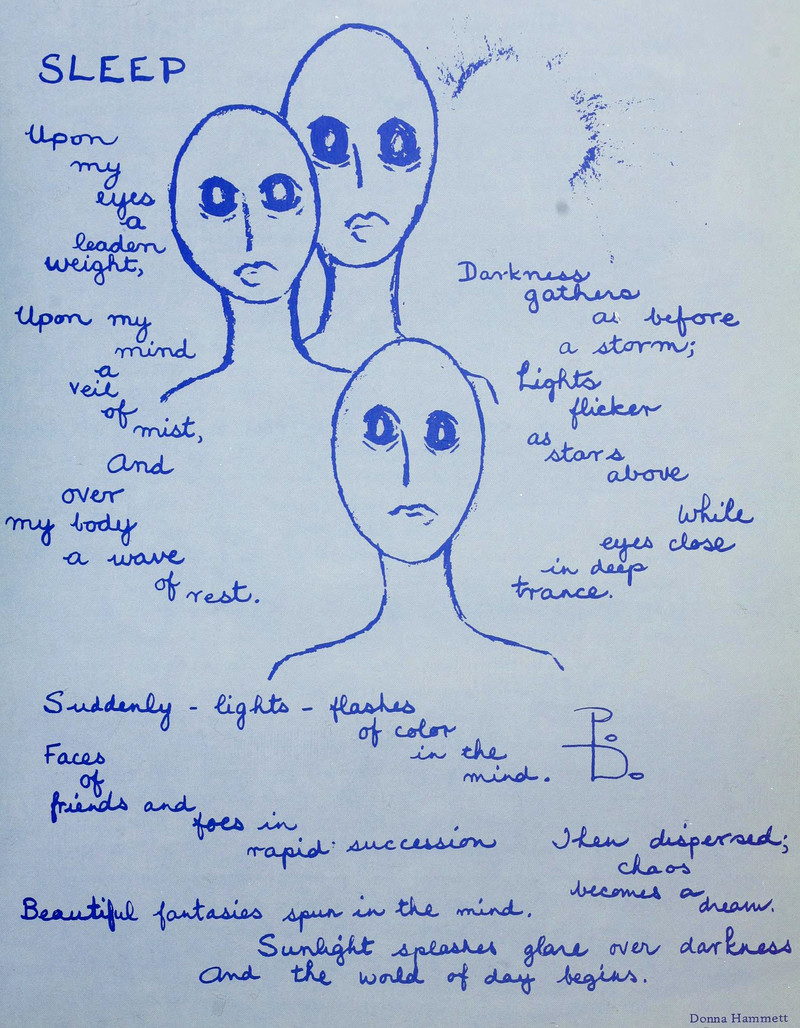 SLEEP
Upon
my
eyes
a
leaden
weight,
Upon my
mind
a
veil
of
mist,
And
over
my body
a wave
of rest.
Darkness
gathers
as before
a storm;
Lights
flicker
as
stars
above
While
eyes close
in deep
trance.
Suddenly - lights - flashes
of color
in the
mind.
Faces
of
friends and
foes in
rapid succession
Then dispersed;
chaos
becomes a
dream.
Beautiful fantasies spun in the mind.
Sunlight splashes glare over darkness
And the world of day begins.
P.D.
Donna Hammett